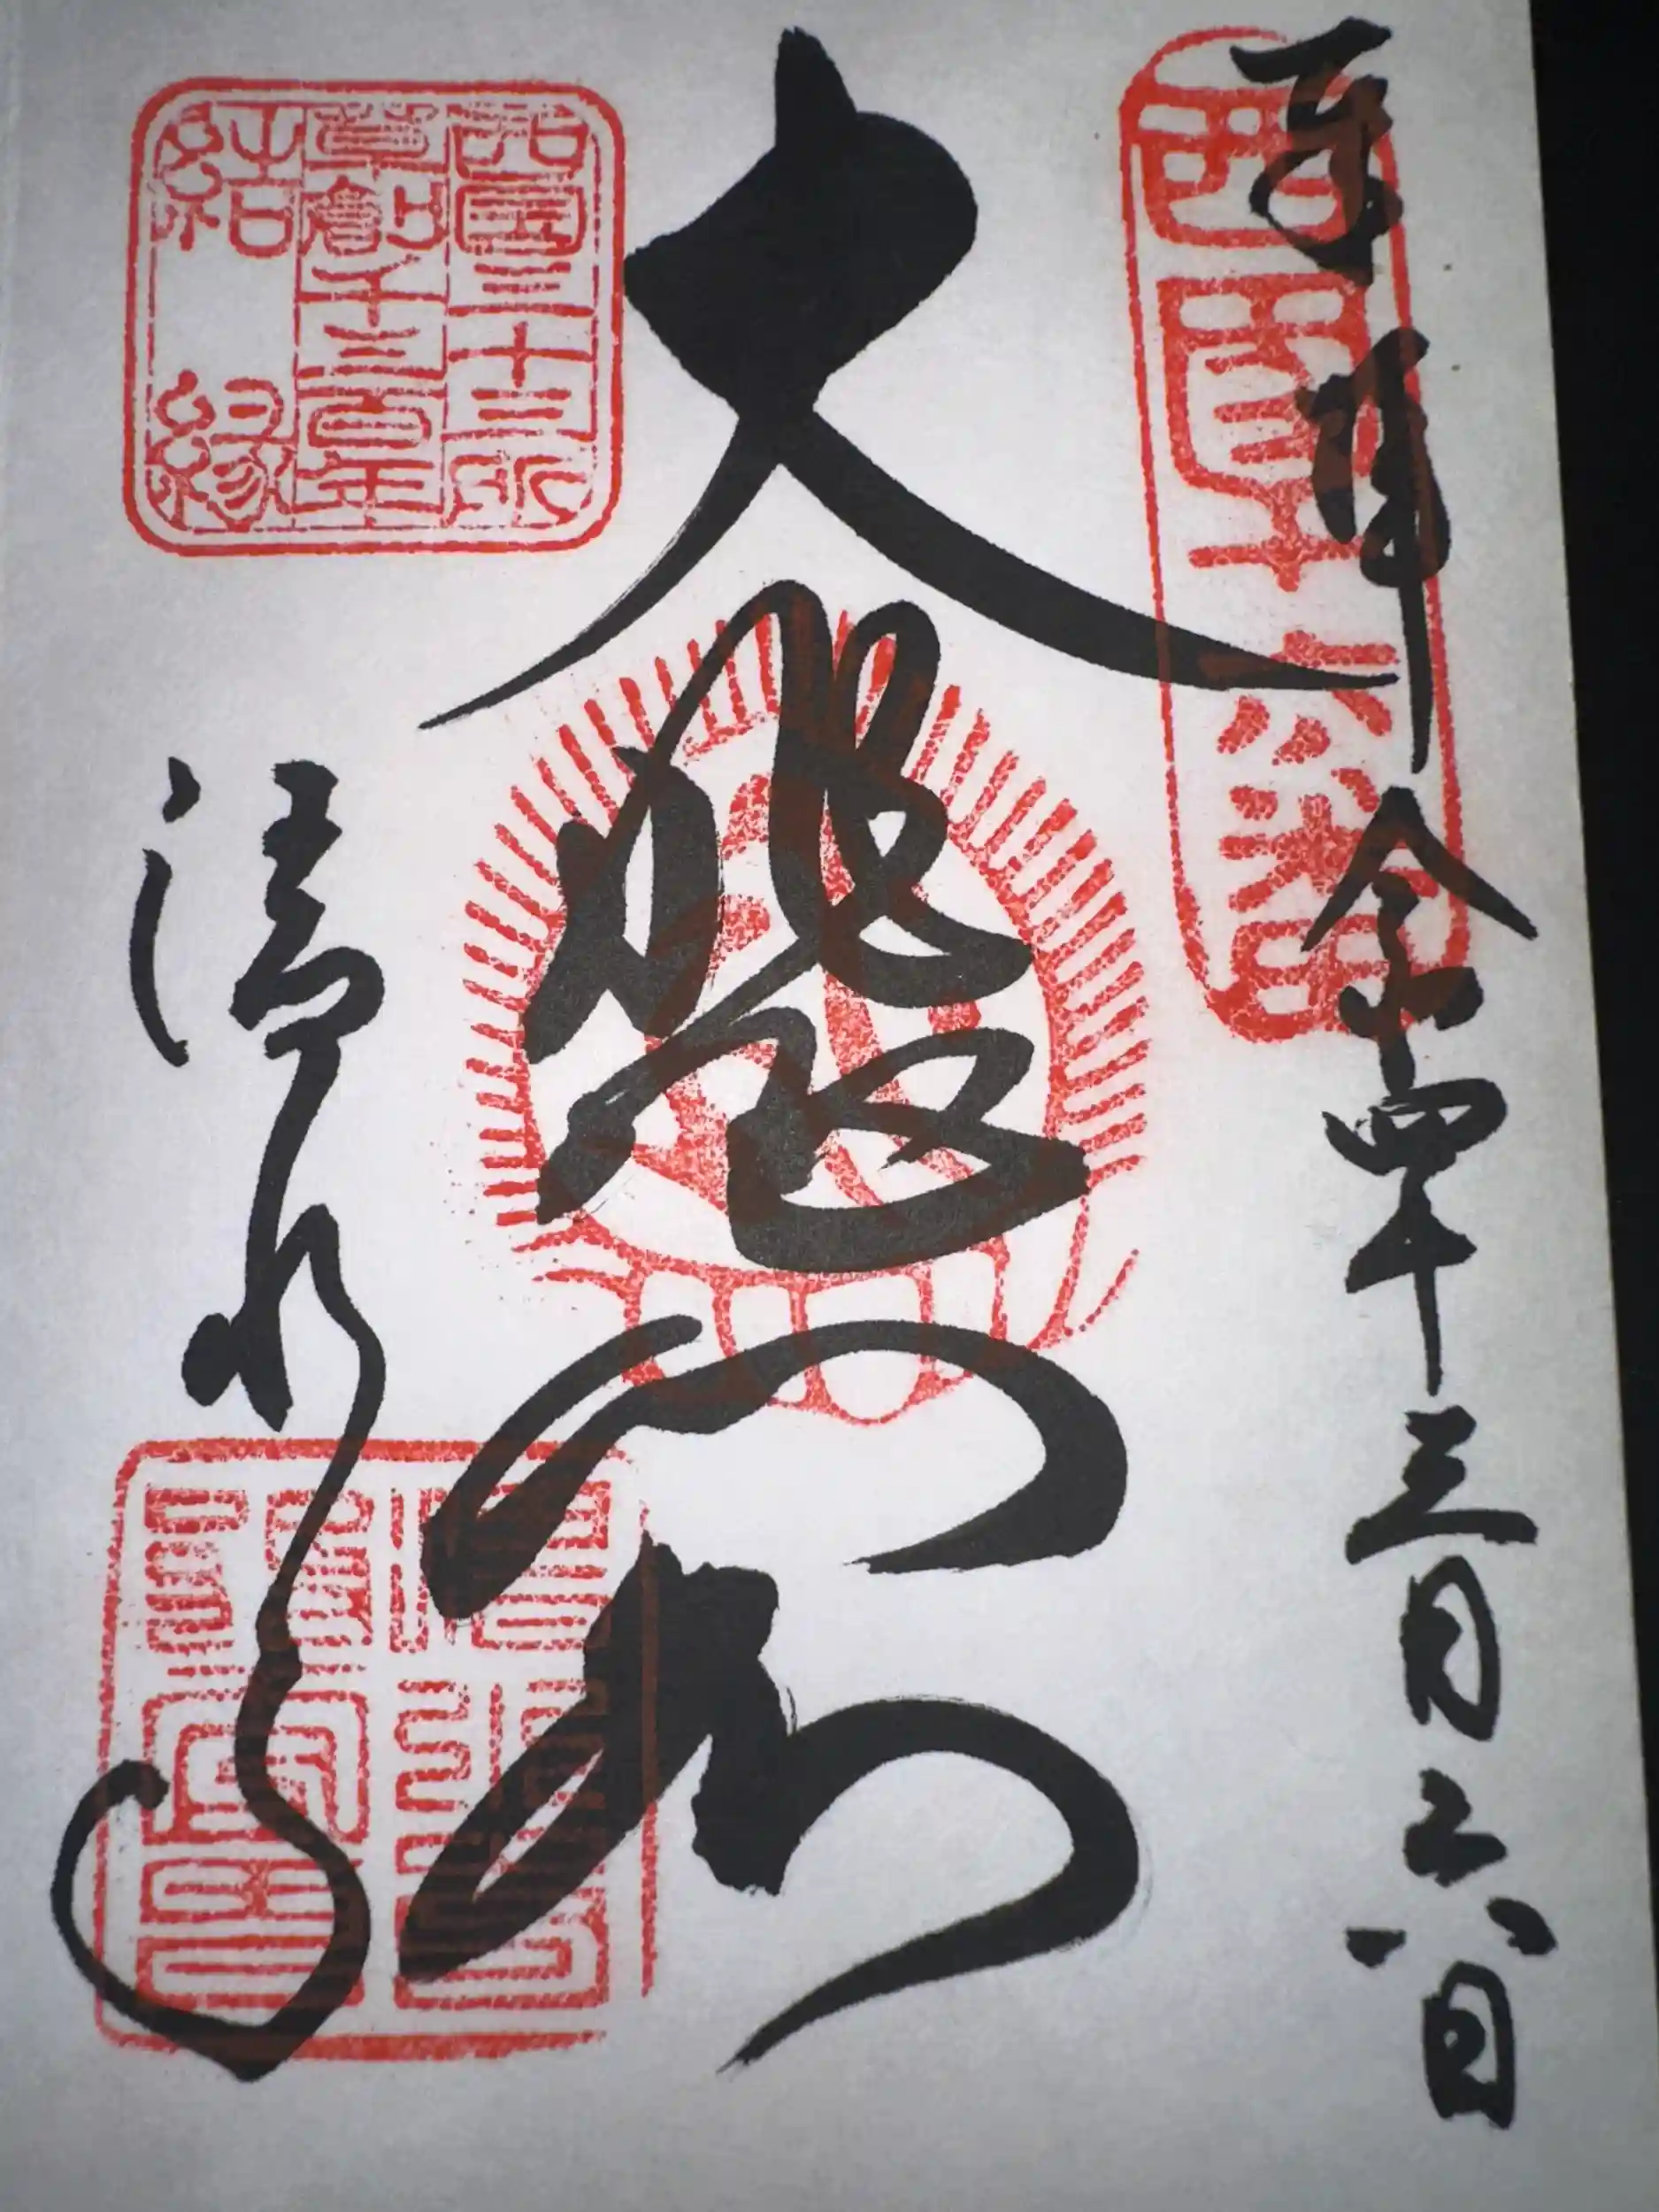 奉拝 令和四年三月二八日
西国十六番
大悲閣
西国三十三所
草創千三百年
結縁
清水寺